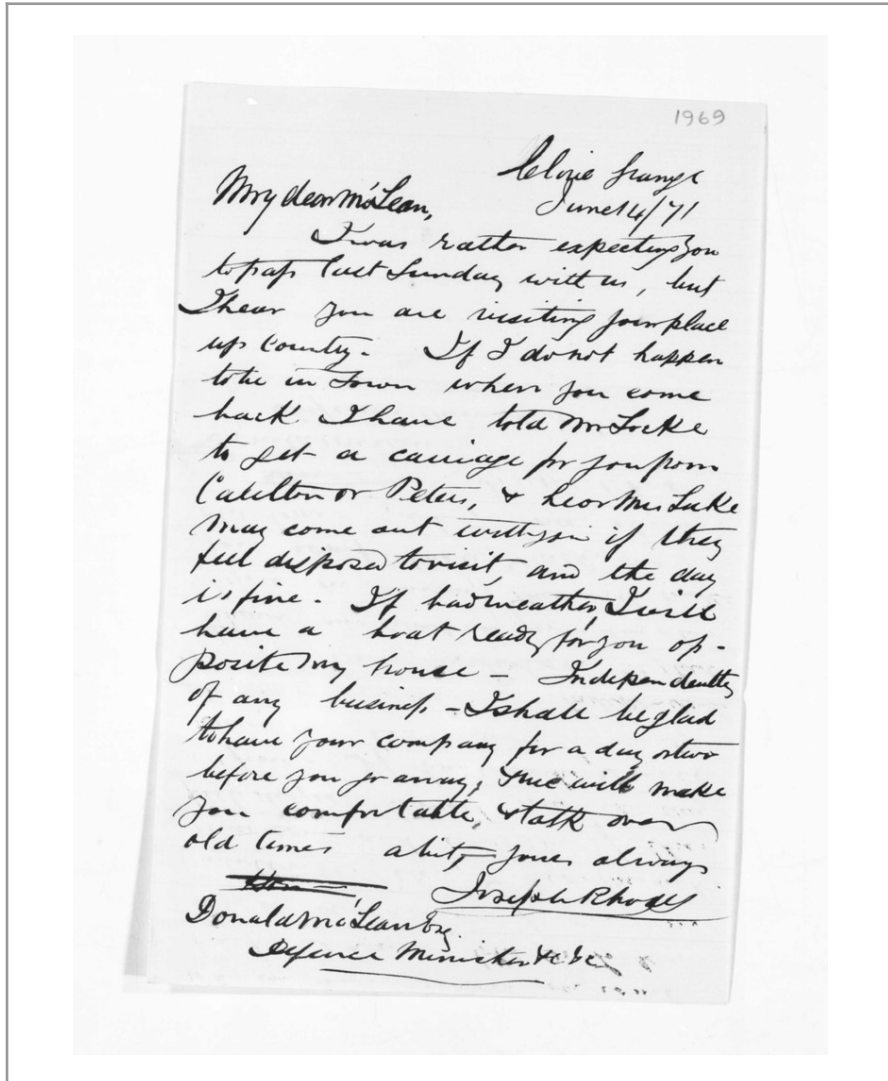 1969
Clive Grange
June 14/71
My dear McLean,
I was rather expecting you
to pass last Sunday with us, but
I hear you are visiting your place
up country. If I do not happen
to be in Town when you come
back I have told Mr Locke
to get a carriage for you from
or Peters, &
may come out with you if they
feel disposed to visit, and the day
is fine. If bad weather, I will
have a boat ready for you op-
posite my house - Independently
of any business - I shall be glad
to have your company for a day or two
before you go away, & we will make
you comfortable, & talk over
old times a bit, yours always
Joseph Rhodes
Donald McLean Esq.
Defence Minister &c &c